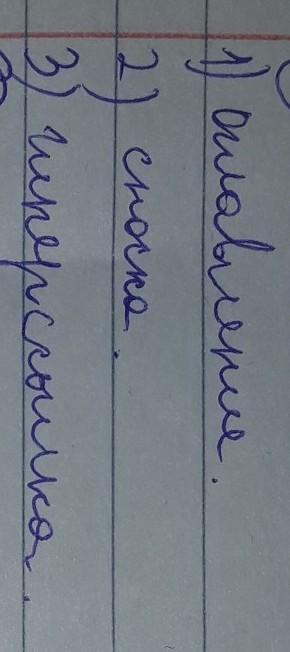 1) оглавление.
2) сноска.
3) гиперссылка.